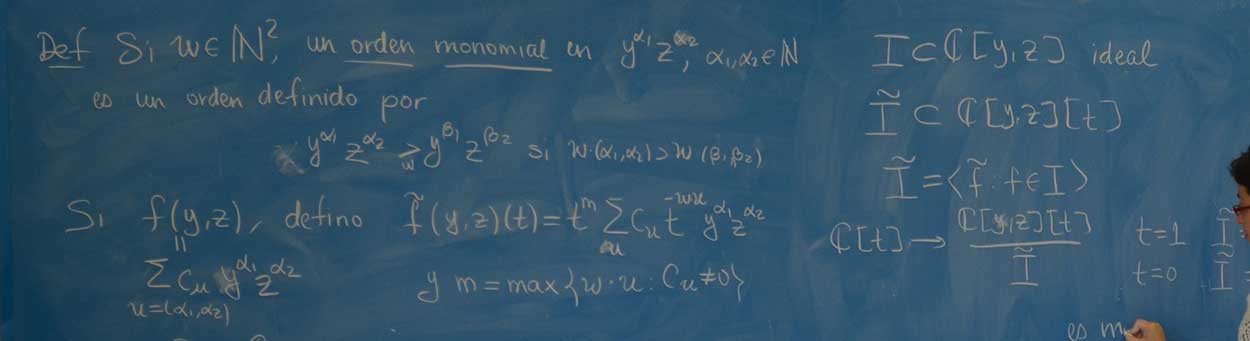 Def Si w ∈ ℕ², un orden monomial en y^α₁ z^α₂, α₁,α₂ ∈ ℕ
es un orden definido por
y^α₁ z^α₂ ≥_w y^β₁ z^β₂ si w·(α₁,α₂) > w(β₁β₂)
Si f(y,z), defino f̃(y,z)(t) = t^m Σ_u C_u t^-wu y^α₁ z^α₂
||
Σ_{u=(α₁,α₂)} C_u y^α₁ z^α₂ y m = max{w·u : C_u ≠ 0}
I ⊂ ℂ[y,z] ideal
Ĩ ⊂ ℂ[y,z][t]
Ĩ = ⟨f̃ : f ∈ I⟩
ℂ[t] → ℂ[y,z][t] / Ĩ
t=1 Ĩ
t=0 Ĩ =
es m